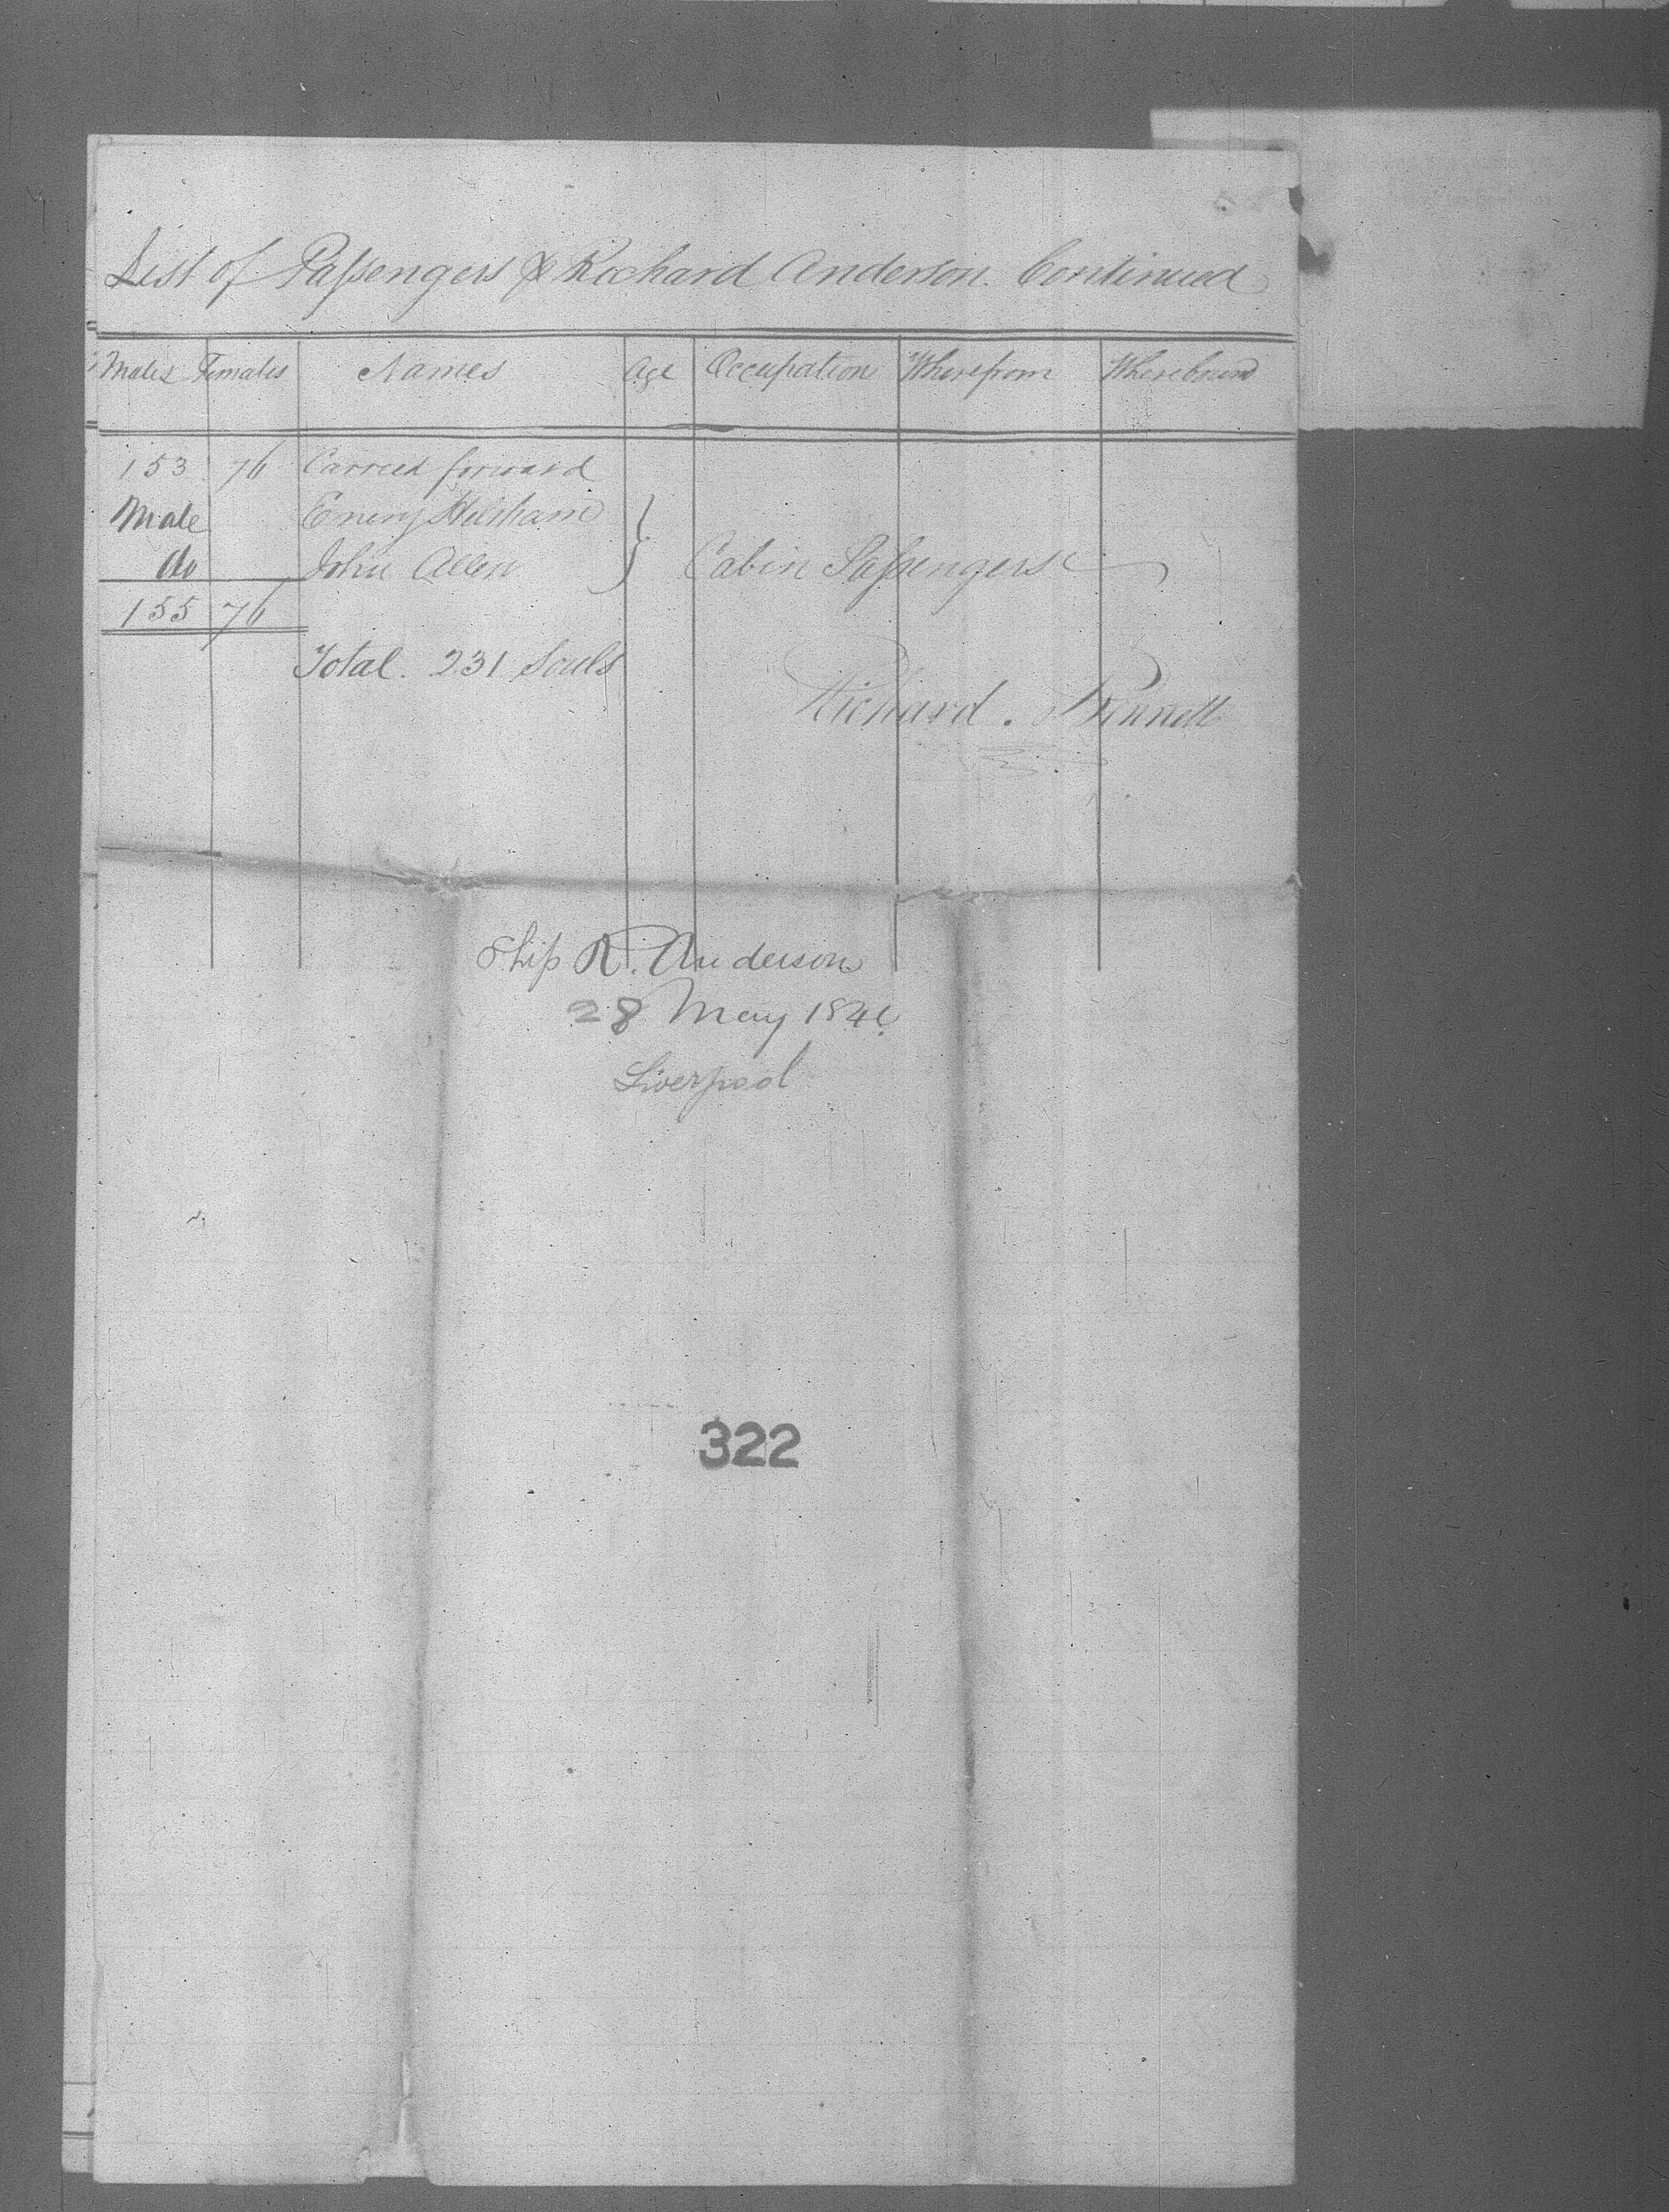 List of Passengers p Richard Anderson. Continued
Males Females Names Age Occupation Wherefrom Wherebound
153 76 Carried forward
Male
do John Allen } Cabin Passengers
155 76
Total. 231 Souls
Richard
Ship R. Anderson
28 May 184
Liverpool
322